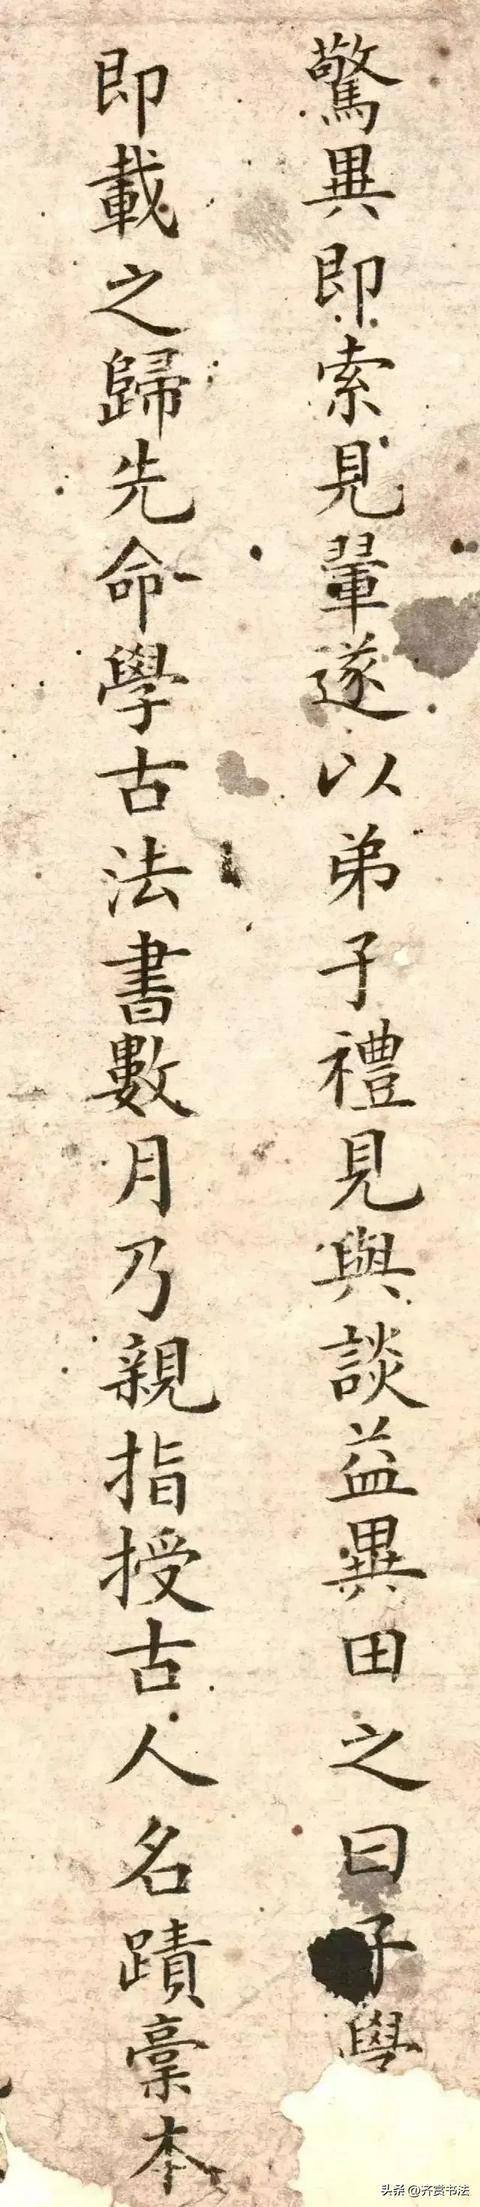 驚異即索見翬遂以弟子禮見與談益異田之曰子學
即載之歸先命學古法書數月乃親指授古人名蹟稾本
头条 @齐赏书法